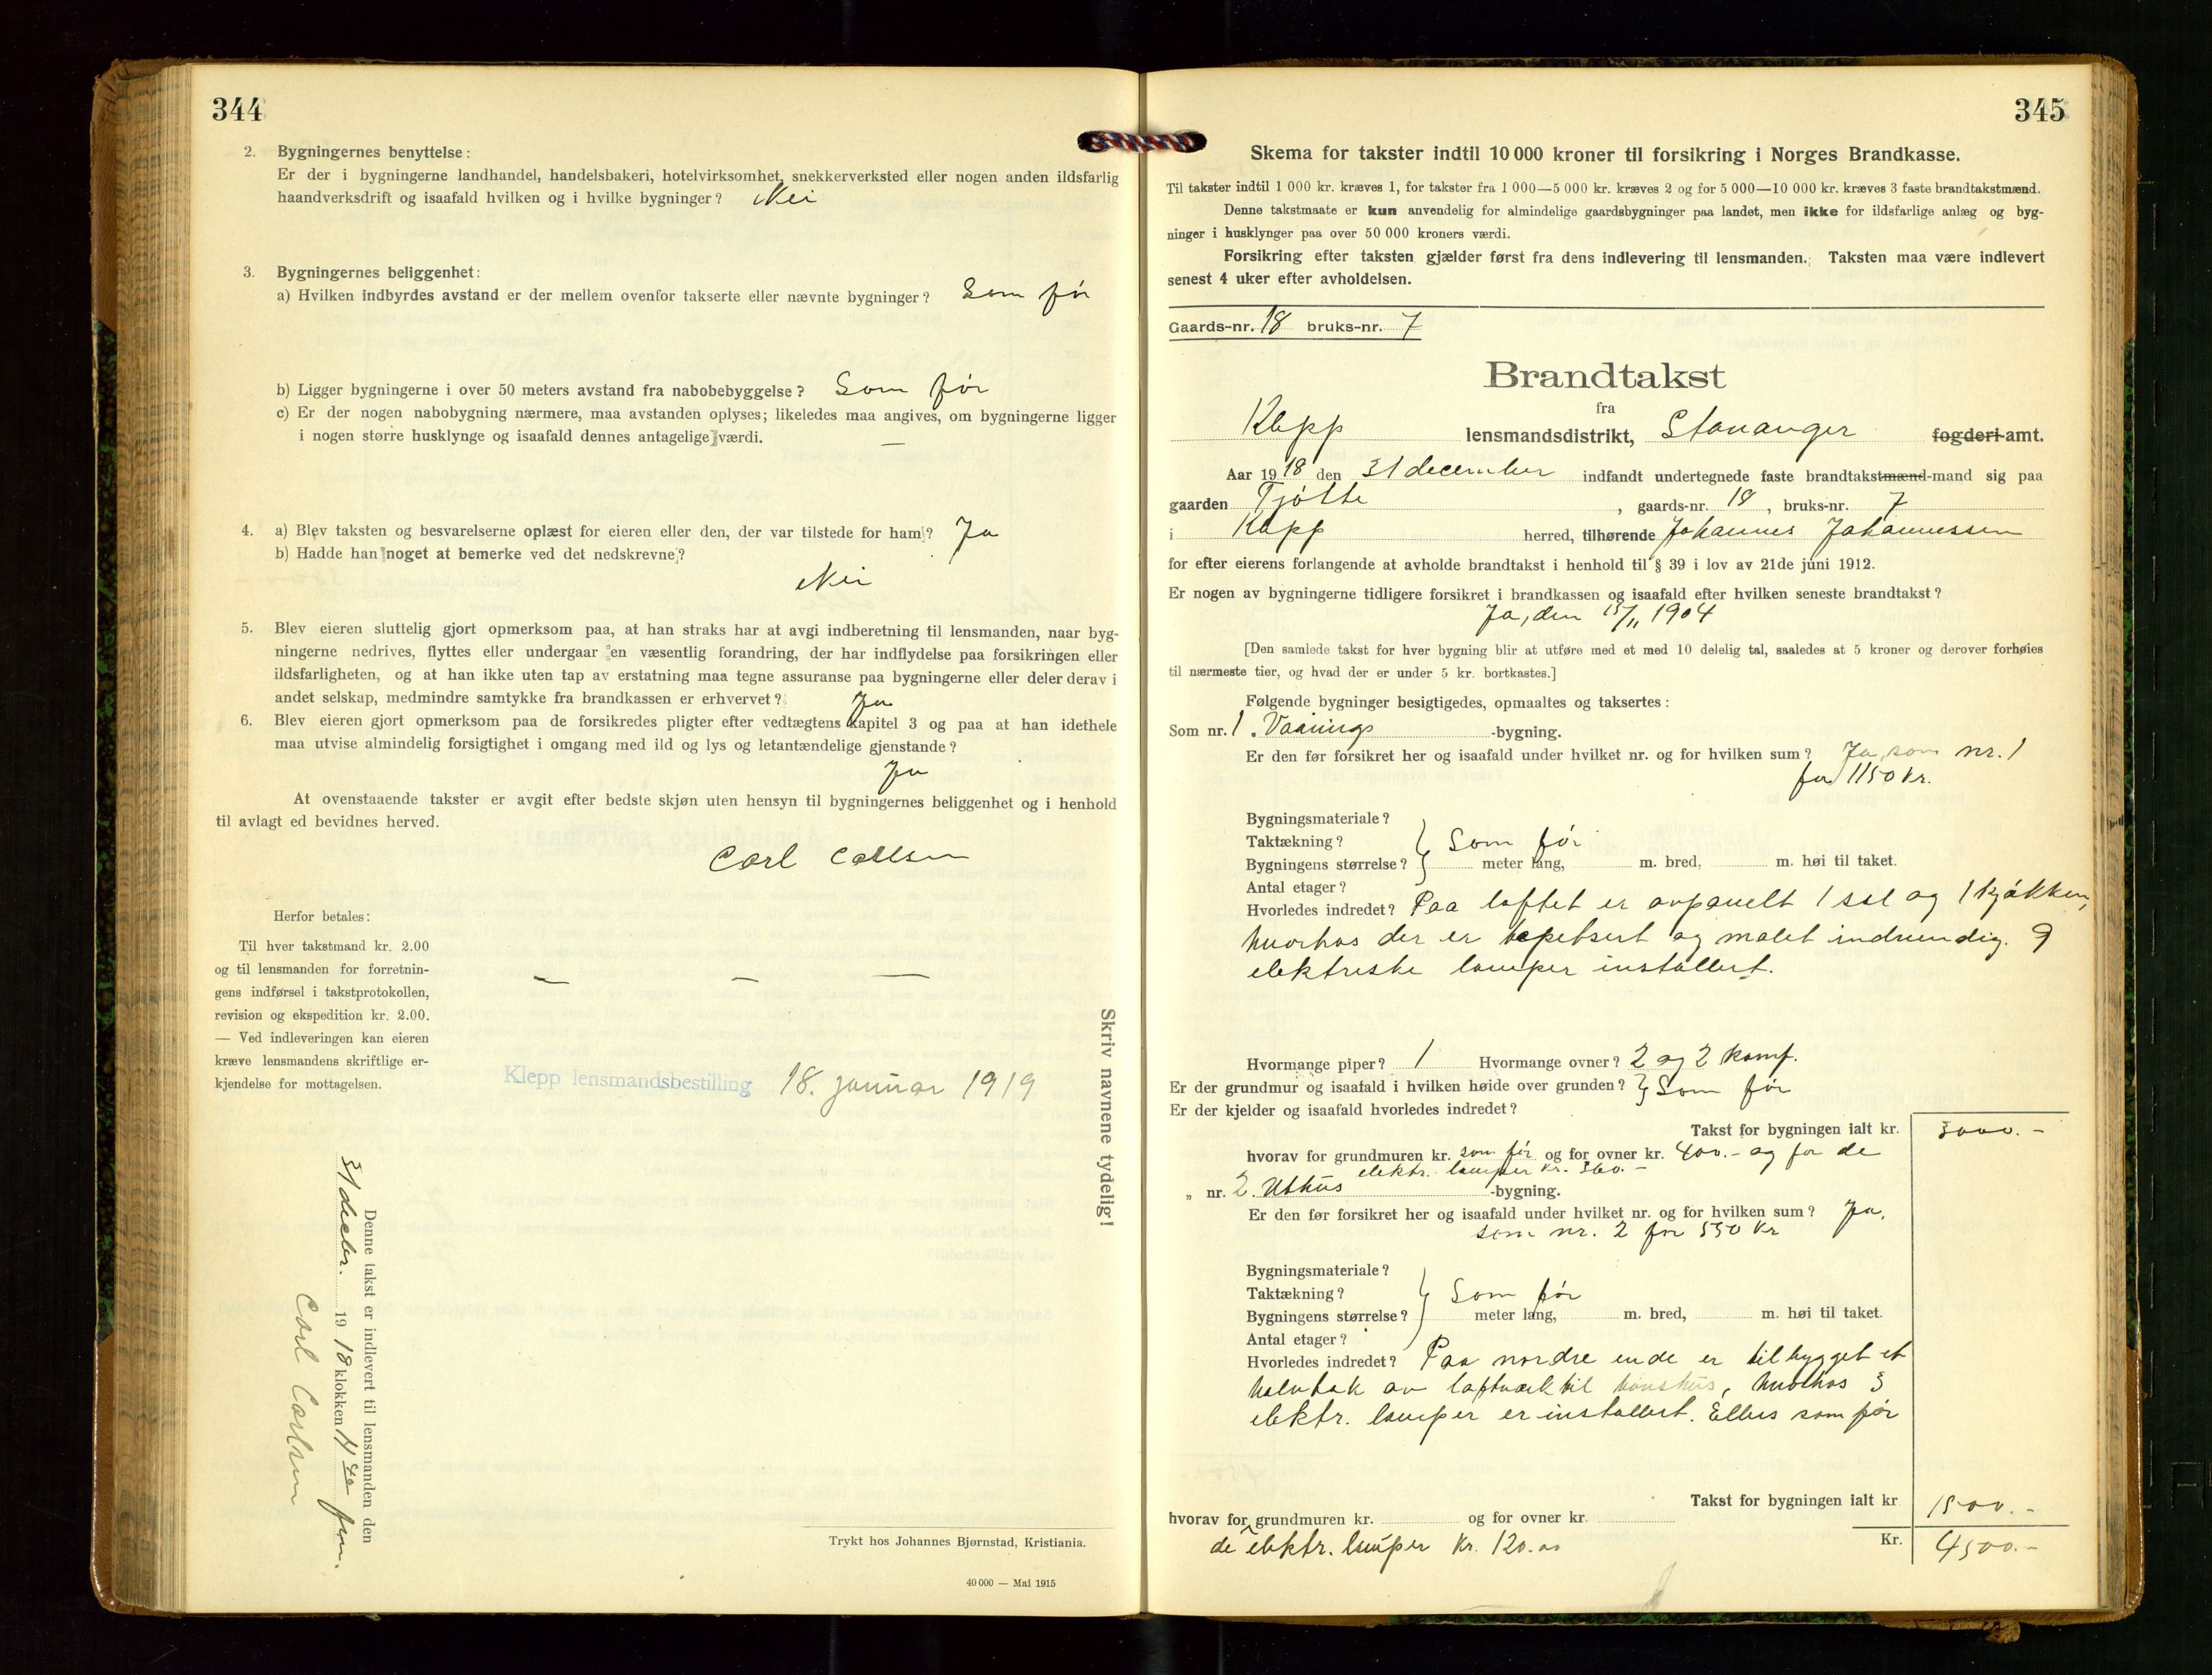 344
2. Bygningernes benyttelse:
Er der i bygningerne landhandel, handelsbakeri, hotelvirksomhet, snekkerverksted eller nogen anden ildsfarlig
haandverksdrift og isaafald hvilken og i hvilke bygninger? Nei
3. Bygningernes beliggenhet:
a) Hvilken indbyrdes avstand er der mellem ovenfor takserte eller nævnte bygninger? Som før
b) Ligger bygningerne i over 50 meters avstand fra nabobebyggelse? Som før
c) Er der nogen nabobygning nærmere, maa avstanden oplyses; likeledes maa angives, om bygningerne ligger
i nogen større husklynge og isaafald dennes antagelige værdi. —
4. a) Blev taksten og besvarelserne oplæst for eieren eller den, der var tilstede for ham? Ja
b) Hadde han noget at bemerke ved det nedskrevne?
Nei
5. Blev eieren sluttelig gjort opmerksom paa, at han straks har at avgi indberetning til lensmanden, naar byg-
ningerne nedrives, flyttes eller undergaar en væsentlig forandring, der har indflydelse paa forsikringen eller
ildsfarligheten, og at han ikke uten tap av erstatning maa tegne assuranse paa bygningerne eller deler derav i
andet selskap, medmindre samtykke fra brandkassen er erhvervet? Ja
6. Blev eieren gjort opmerksom paa de forsikredes pligter efter vedtægtens kapitel 3 og paa at han idethele
maa utvise almindelig forsigtighet i omgang med ild og lys og letantændelige gjenstande?
Ja
At ovenstaaende takster er avgit efter bedste skjøn uten hensyn til bygningernes beliggenhet og i henhold
til avlagt ed bevidnes herved.
Carl Carlsen
Herfor betales:
Til hver takstmand kr. 2.00
og til lensmanden for forretnin-
gens indførsel i takstprotokollen,
revision og ekspedition kr. 2.00.
— Ved indleveringen kan eieren
kræve lensmandens skriftlige er-
kjendelse for mottagelsen.
— — —
Klepp lensmandsbestilling 18. januar 1919
Skriv navnene tydelig!
Denne takst er indlevert til lensmanden den
31 decbr. 1918 klokken 4 40 fm.
Carl Carlsen
Trykt hos Johannes Bjørnstad, Kristiania.
40 000 — Mai 1915
345
Skema for takster indtil 10 000 kroner til forsikring i Norges Brandkasse.
Til takster indtil 1 000 kr. kræves 1, for takster fra 1 000—5 000 kr. kræves 2 og for 5 000—10 000 kr. kræves 3 faste brandtakstmænd.
Denne takstmaate er kun anvendelig for almindelige gaardsbygninger paa landet, men ikke for ildsfarlige anlæg og byg-
ninger i husklynger paa over 50 000 kroners værdi.
Forsikring efter taksten gjælder først fra dens indlevering til lensmanden. Taksten maa være indlevert
senest 4 uker efter avholdelsen.
Gaards-nr. 18 bruks-nr. 7
Brandtakst
fra
Klepp lensmandsdistrikt, Stavanger fogderi-amt.
Aar 1918 den 31 december indfandt undertegnede faste brandtakstmænd-mand sig paa
gaarden Tjøtte, gaards-nr. 18, bruks-nr. 7
i Klepp herred, tilhørende Johannes Johannessen
for efter eierens forlangende at avholde brandtakst i henhold til § 39 i lov av 21de juni 1912.
Er nogen av bygningerne tidligere forsikret i brandkassen og isaafald efter hvilken seneste brandtakst?
Ja, den 15/11 1904
[Den samlede takst for hver bygning blir at utføre med et med 10 delelig tal, saaledes at 5 kroner og derover forhøies
til nærmeste tier, og hvad der er under 5 kr. bortkastes.]
Følgende bygninger besigtigedes, opmaaltes og taksertes:
Som nr. 1. Vaanings -bygning.
Er den før forsikret her og isaafald under hvilket nr. og for hvilken sum? Ja, som nr. 1
for 1150 kr.
Bygningsmateriale?
Taktækning? Som før
Bygningens størrelse? meter lang, m. bred, m. høi til taket.
Antal etager?
Hvorledes indredet? Paa loftet er avpanelt 1 sal og 1 kjøkken,
hvorhos der er tapetsert og malet indvendig. 9
elektriske lamper installert.
Hvormange piper? 1 Hvormange ovner? 2 og 2 komf.
Er der grundmur og isaafald i hvilken høide over grunden? Som før
Er der kjelder og isaafald hvorledes indredet?
Takst for bygningen ialt kr. 3000.-
hvorav for grundmuren kr. som før og for ovner kr. 400.- og for de
elektr. lamper kr. 360.-
„ nr. 2. Uthus -bygning.
Er den før forsikret her og isaafald under hvilket nr. og for hvilken sum? Ja,
som nr. 2 for 550 kr
Bygningsmateriale?
Taktækning? Som før
Bygningens størrelse? meter lang, m. bred, m. høi til taket.
Antal etager?
Hvorledes indredet? Paa nordre ende er tilbygget et
halvtak av loftværk til hønshus, hvorhos 3
elektr. lamper er installert. Ellers som før
Takst for bygningen ialt kr 1500.-
hvorav for grundmuren kr. og for ovner kr.
de elektr. lamper kr. 120.00
Kr. 4500.-